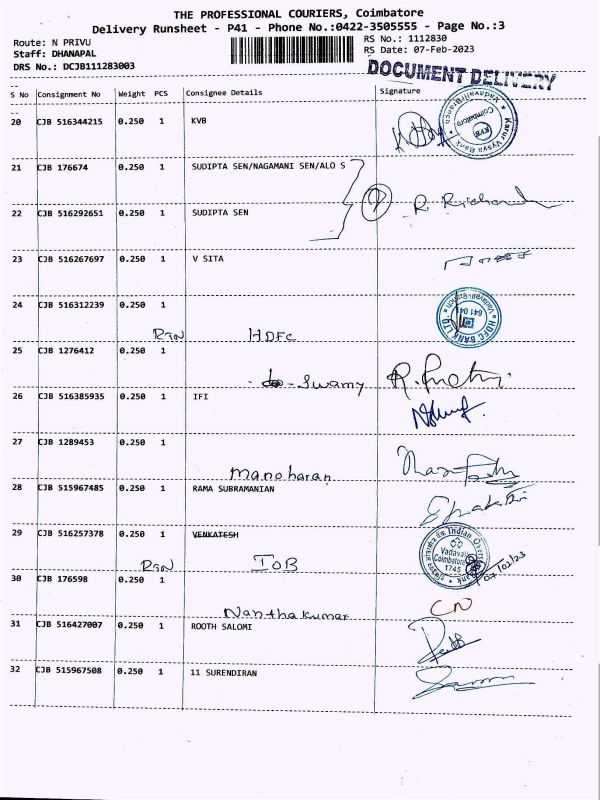 THE PROFESSIONAL COURIERS, Coimbatore
Delivery Runsheet - P41 - Phone No.:0422-3505555 - Page No.:3
Route: N PRIVU
RS No.: 1112830
Staff: DHANAPAL
RS Date: 07-Feb-2023
DRS No.: DCJB111283003
DOCUMENT DELIVERY
S No Consignment No Weight PCS Consignee Details Signature
20 CJB 516344215 0.250 1 KVB
Karur Vysya Bank
Vadavalli Branch
KVB
Coimbatore
21 CJB 176674 0.250 1 SUDIPTA SEN/NAGAMANI SEN/ALO S
22 CJB 516292651 0.250 1 SUDIPTA SEN
23 CJB 516267697 0.250 1 V SITA
24 CJB 516312239 0.250 1
HDFC
HDFC BANK LTD
641 041
25 CJB 1276412 0.250 1
Swamy
26 CJB 516385935 0.250 1 IFI
27 CJB 1289453 0.250 1
Manoharan
28 CJB 515967485 0.250 1 RAMA SUBRAMANIAN
29 CJB 516257378 0.250 1 VENKATESH
IOB
Indian Overseas Bank
Vadavalli
Coimbatore
1745
07/02/23
30 CJB 176598 0.250 1
CN
Nanthakumar
31 CJB 516427007 0.250 1 ROOTH SALOMI
32 CJB 515967508 0.250 1 11 SURENDIRAN